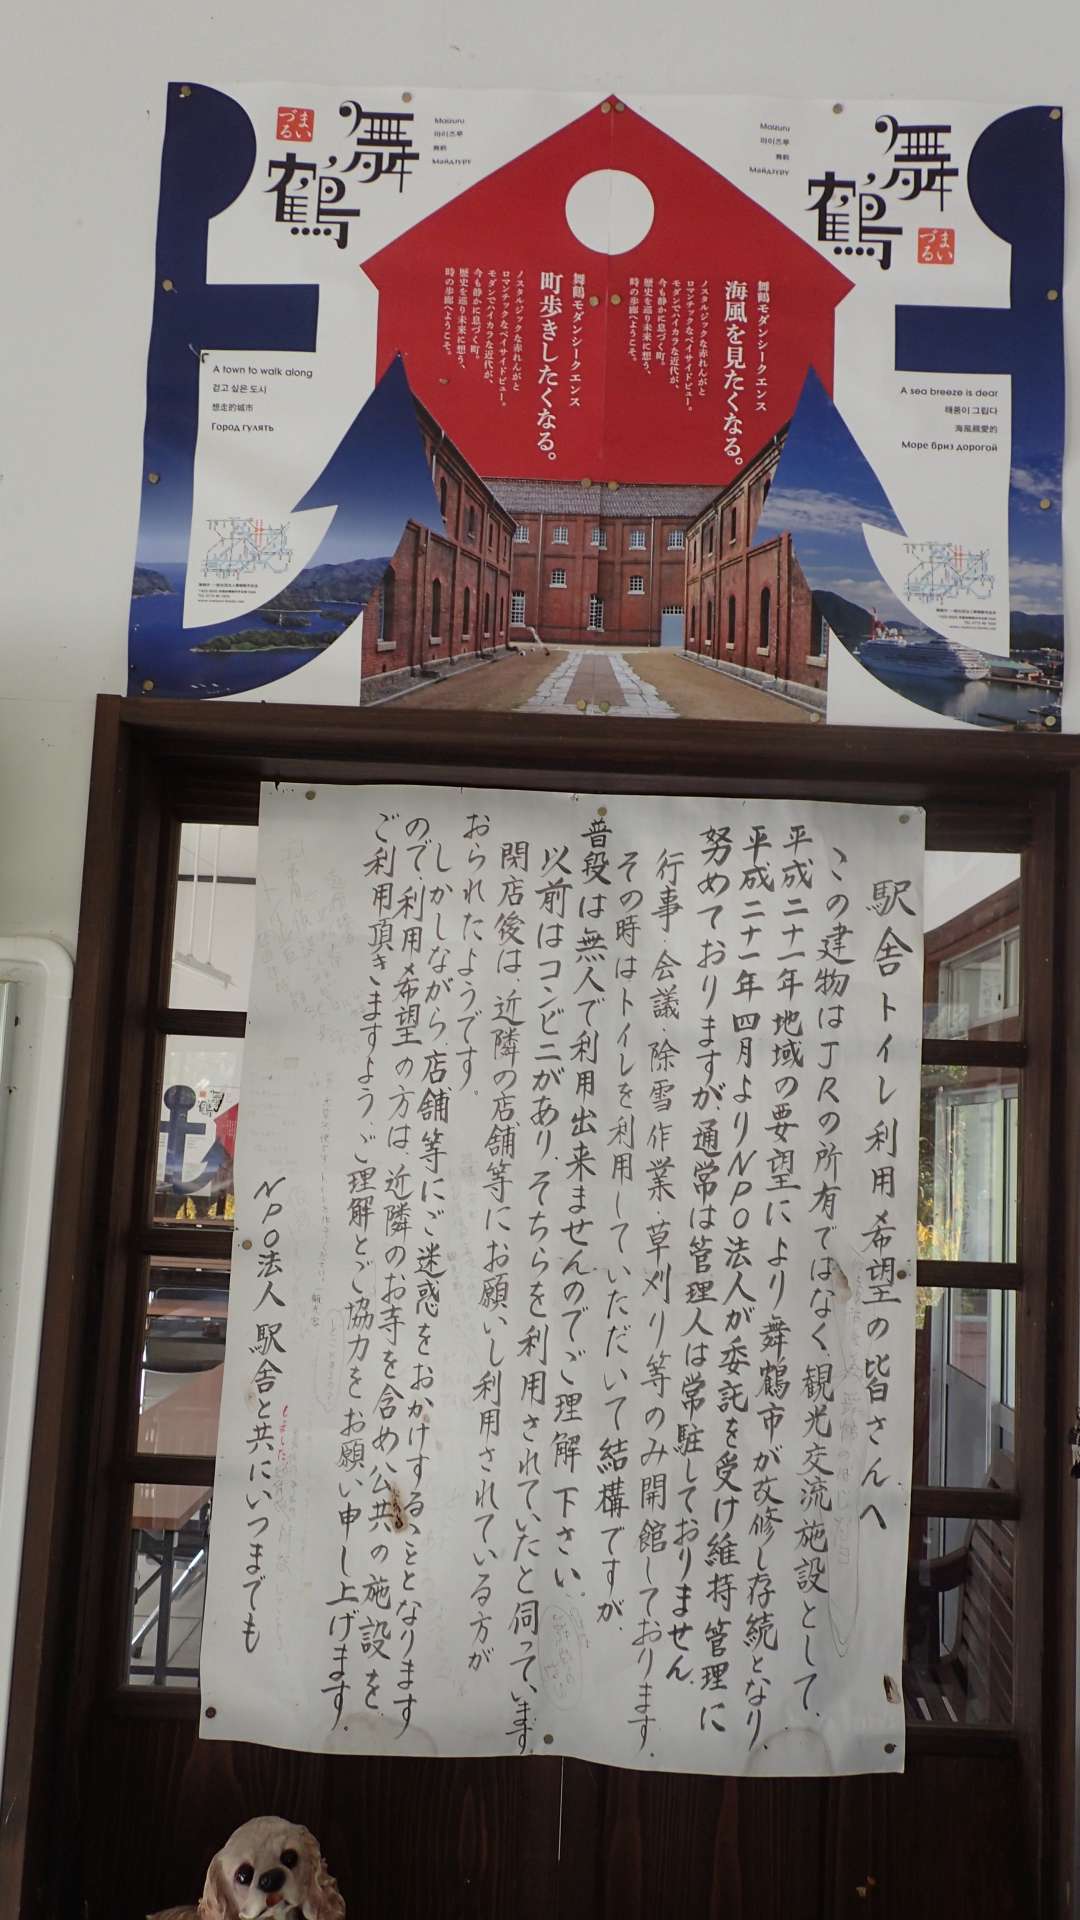 まい
づる
舞
鶴
Maizuru
마이즈루
舞鶴
Майдзуру
舞鶴モダンシークエンス
町歩きしたくなる。
ノスタルジックな赤れんがと
ロマンチックなベイサイドビュー。
モダンでハイカラな近代が、
今も静かに息づく町。
歴史を巡り未来に想う、
時の歩廊へようこそ。
A town to walk along
걷고 싶은 도시
想走的城市
Город гулять
Maizuru
마이즈루
舞鶴
Майдзуру
舞
鶴
まい
づる
舞鶴モダンシークエンス
海風を見たくなる。
ノスタルジックな赤れんがと
ロマンチックなベイサイドビュー。
モダンでハイカラな近代が、
今も静かに息づく町。
歴史を巡り未来に想う、
時の歩廊へようこそ。
A sea breeze is dear
해풍이 그립다
海風親愛的
Море бриз дорогой
駅舎トイレ利用希望の皆さんへ
この建物はJRの所有ではなく、観光交流施設として、
平成二十一年地域の要望により、舞鶴市が改修し存続となり、
平成二十一年四月よりNPO法人が委託を受け維持管理に
努めておりますが、通常は管理人は常駐しておりません。
行事・会議・除雪作業・草刈り等のみ開館しております。
その時はトイレを利用していただいて結構ですが、
普段は無人で利用出来ませんのでご理解下さい。
以前はコンビニがあり、そちらを利用されていたと伺っています。
閉店後は、近隣の店舗等にお願いし利用されている方が
おられたようです。
しかしながら、店舗等にご迷惑をおかけすることとなります
ので、利用希望の方は、近隣のお寺を含め公共の施設を
ご利用頂きますよう、ご理解とご協力をお願い申し上げます。
NPO法人駅舎と共にいつまでも